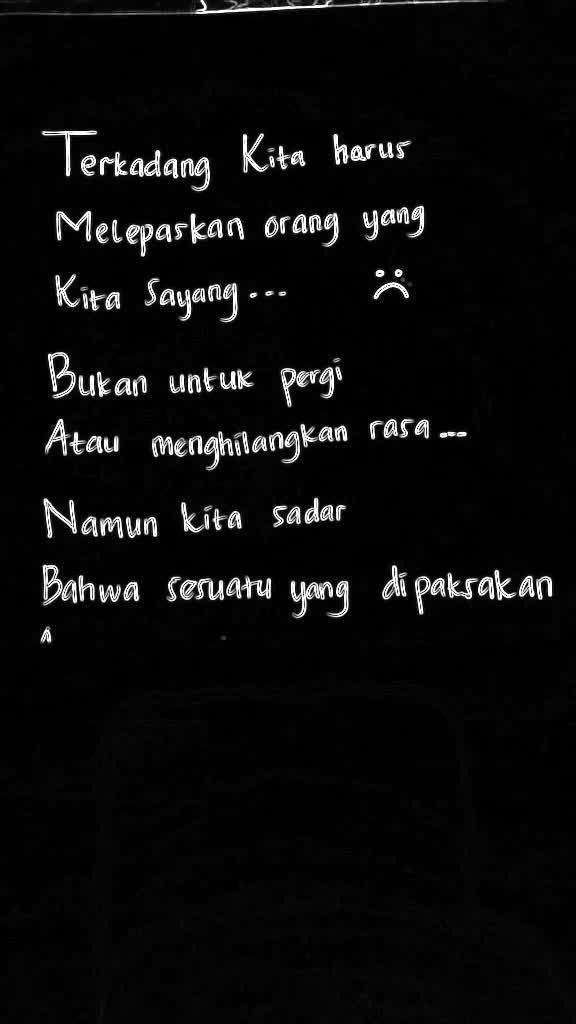 Terkadang Kita harus
Melepaskan orang yang
Kita Sayang...
Bukan untuk pergi
Atau menghilangkan rasa...
Namun kita sadar
Bahwa sesuatu yang dipaksakan